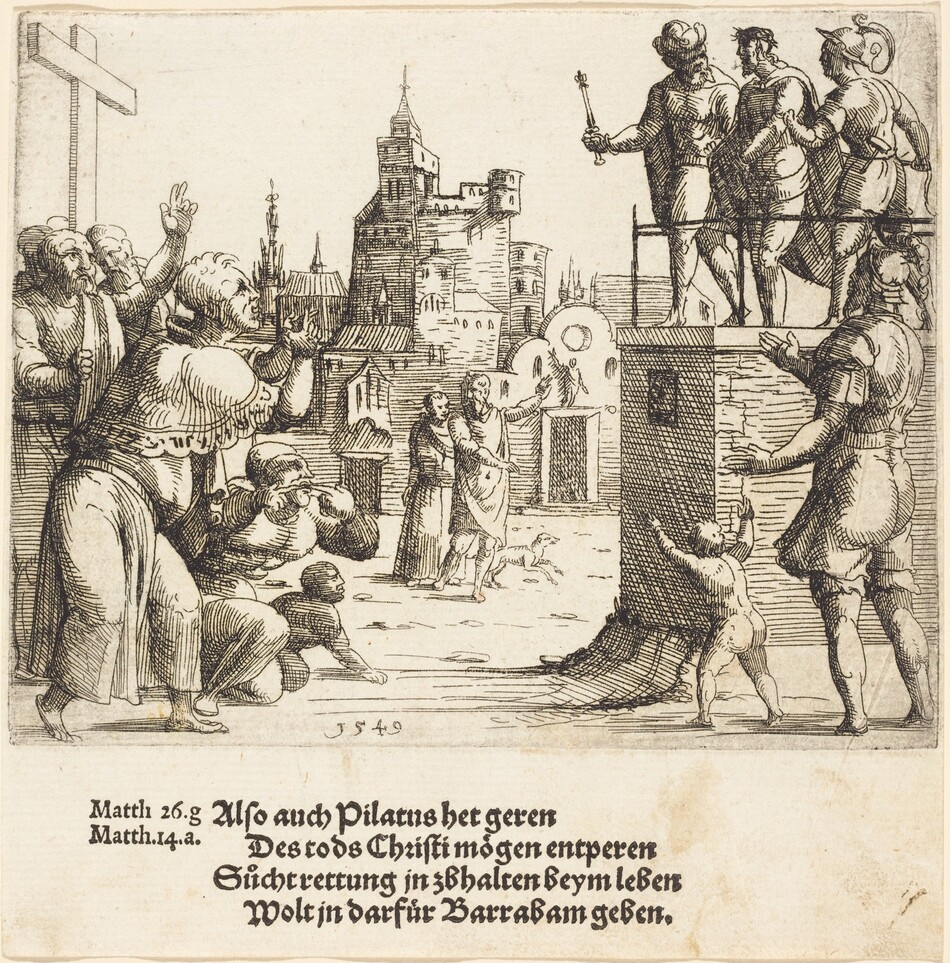 1549
Matth 26.g
Matth.14.a.
Also auch Pilatus het geren
Des tods Christi mögen entperen
Sůcht rettung jn zbhalten beym leben
Wolt jn darfür Barrabam geben.